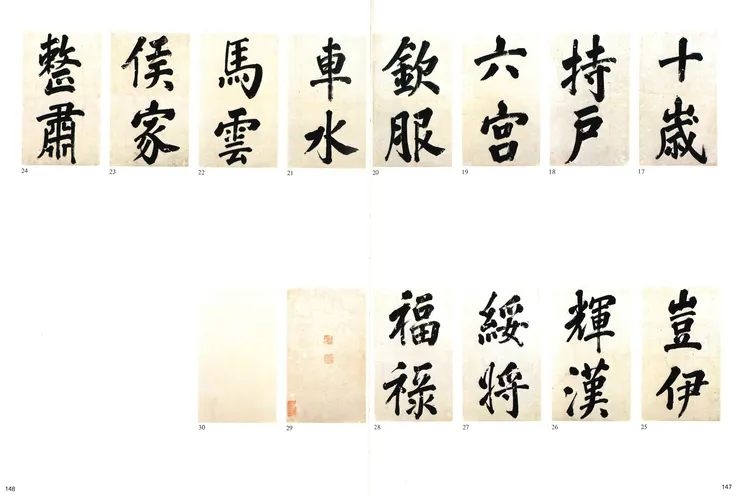 十歲
17
持戶
18
六宮
19
欽服
20
車水
21
馬雲
22
侯家
23
整肅
24
豈伊
25
輝漢
26
綏將
27
福祿
28
29
30
147
148